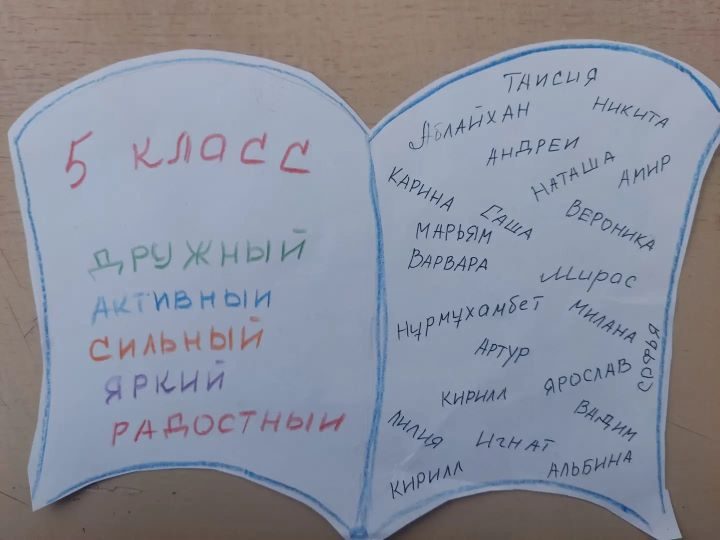 5 КЛАСС
ДРУЖНЫЙ
АКТИВНЫЙ
СИЛЬНЫЙ
ЯРКИЙ
РАДОСТНЫЙ
ТАИСИЯ
АБЛАЙХАН
НИКИТА
АНДРЕЙ
НАТАША
АМИР
КАРИНА
САША
ВЕРОНИКА
МАРЬЯМ
ВАРВАРА
Мирас
Нұрмұхамбет
МИЛАНА
СОФЬЯ
АРТУР
ЯРОСЛАВ
КИРИЛЛ
ВАДИМ
ЛИЛИЯ
ИГНАТ
КИРИЛЛ
АЛЬБИНА